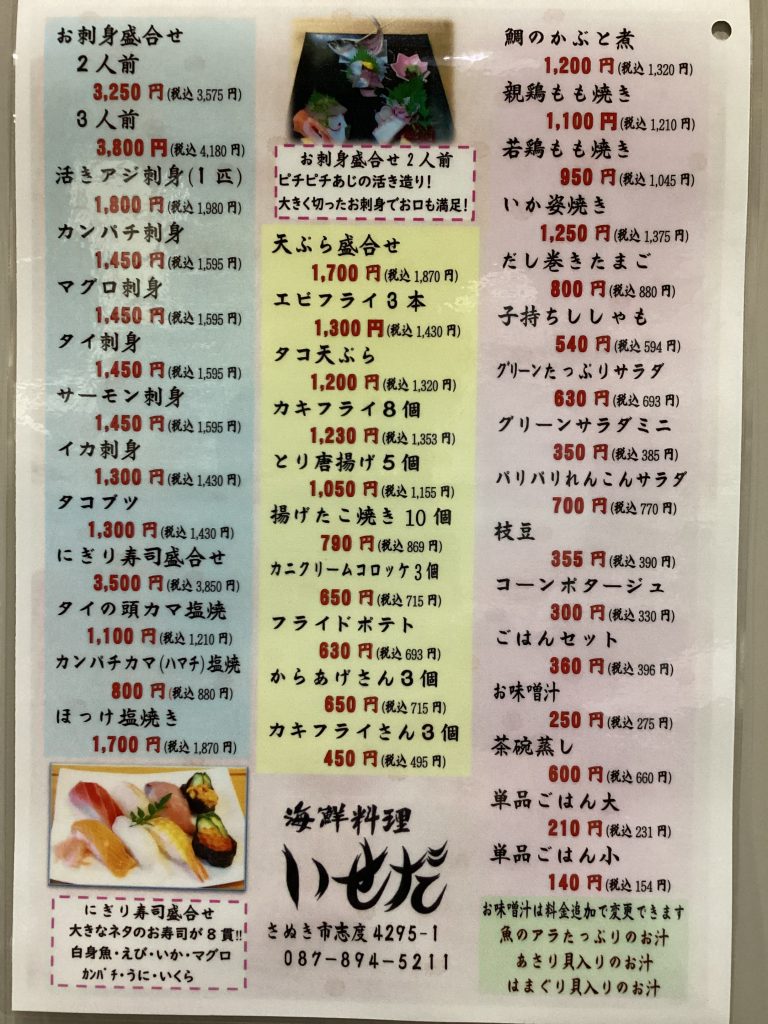 お刺身盛合せ
2人前
3,250 円(税込 3,575 円)
3人前
3,800 円(税込 4,180 円)
活きアジ刺身(1匹)
1,800 円(税込 1,980 円)
カンパチ刺身
1,450 円(税込 1,595 円)
マグロ刺身
1,450 円(税込 1,595 円)
タイ刺身
1,450 円(税込 1,595 円)
サーモン刺身
1,450 円(税込 1,595 円)
イカ刺身
1,300 円(税込 1,430 円)
タコブツ
1,300 円(税込 1,430 円)
にぎり寿司盛合せ
3,500 円(税込 3,850 円)
タイの頭カマ塩焼
1,100 円(税込 1,210 円)
カンパチカマ(ハマチ)塩焼
800 円(税込 880 円)
ほっけ塩焼き
1,700 円(税込 1,870 円)
にぎり寿司盛合せ
大きなネタのお寿司が8貫!!
白身魚・えび・いか・マグロ
カンパチ・うに・いくら
お刺身盛合せ2人前
ピチピチあじの活き造り!
大きく切ったお刺身でお口も満足!
天ぷら盛合せ
1,700 円(税込 1,870 円)
エビフライ3本
1,300 円(税込 1,430 円)
タコ天ぷら
1,200 円(税込 1,320 円)
カキフライ8個
1,230 円(税込 1,353 円)
とり唐揚げ5個
1,050 円(税込 1,155 円)
揚げたこ焼き 10個
790 円(税込 869 円)
カニクリームコロッケ3個
650 円(税込 715 円)
フライドポテト
630 円(税込 693 円)
からあげさん3個
650 円(税込 715 円)
カキフライさん3個
450 円(税込 495 円)
海鮮料理
いせだ
さぬき市志度4295-1
087-894-5211
鯛のかぶと煮
1,200 円(税込 1,320 円)
親鶏もも焼き
1,100 円(税込 1,210 円)
若鶏もも焼き
950 円(税込 1,045 円)
いか姿焼き
1,250 円(税込 1,375 円)
だし巻きたまご
800 円(税込 880 円)
子持ちししゃも
540 円(税込 594 円)
グリーンたっぷりサラダ
630 円(税込 693 円)
グリーンサラダミニ
350 円(税込 385 円)
パリパリれんこんサラダ
700 円(税込 770 円)
枝豆
355 円(税込 390 円)
コーンポタージュ
300 円(税込 330 円)
ごはんセット
360 円(税込 396 円)
お味噌汁
250 円(税込 275 円)
茶碗蒸し
600 円(税込 660 円)
単品ごはん大
210 円(税込 231 円)
単品ごはん小
140 円(税込 154 円)
お味噌汁は料金追加で変更できます
魚のアラたっぷりのお汁
あさり貝入りのお汁
はまぐり貝入りのお汁